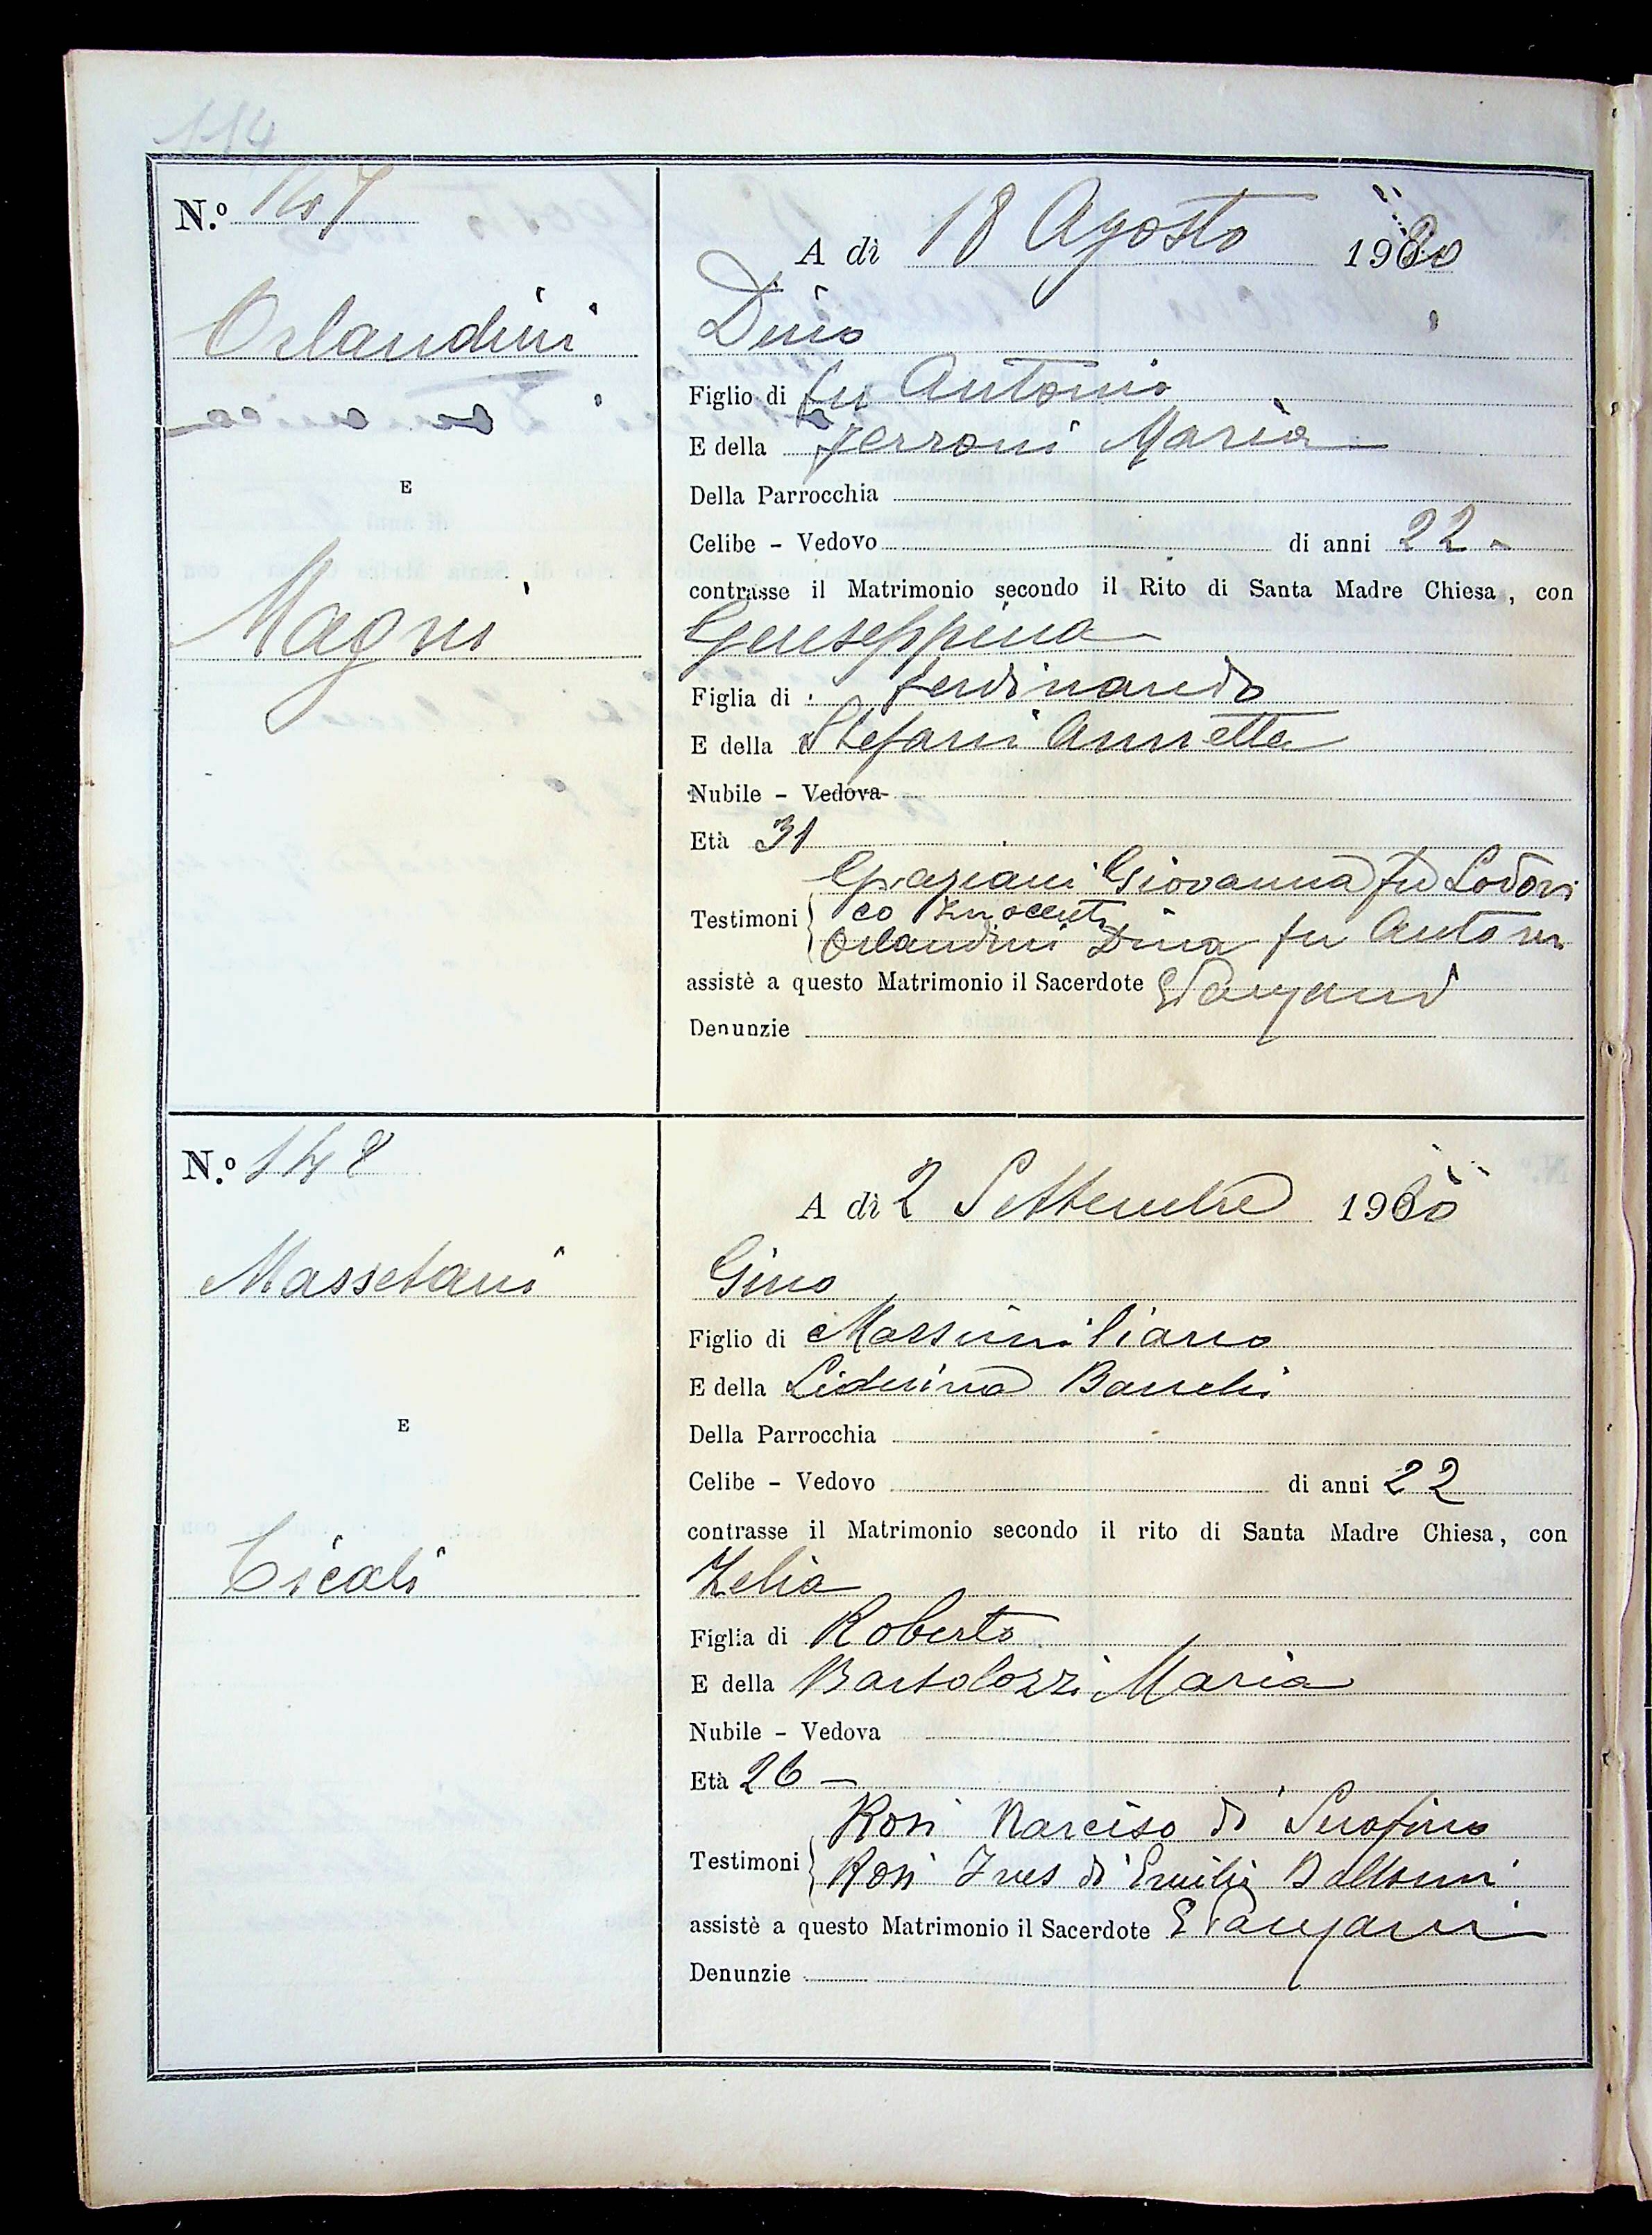 114
N.º 147
A dì 18 Agosto 1920
Orlandini
Dino
Figlio di fu Antonio
E della Ferroni Maria
E
Della Parrocchia
Celibe - Vedovo di anni 22 -
contrasse il Matrimonio secondo il Rito di Santa Madre Chiesa, con
Magni
Giuseppina
Figlia di Ferdinando
E della Stefani Annetta
Nubile - Vedova
Età 31
Graziani Giovanna fu Lodovi
Testimoni co Innocenti
Orlandini Dina fu Antonio
assistè a questo Matrimonio il Sacerdote
Denunzie
N.º 148
A dì 2 Settembre 19
Massetani
Gino
Figlio di Massimiliano
E della Banchi
E
Della Parrocchia
Celibe - Vedovo di anni 22
contrasse il Matrimonio secondo il rito di Santa Madre Chiesa, con
Cicali
Zelia
Figlia di Roberto
E della Bartolozzi Maria
Nubile - Vedova
Età 26 -
Rosi Narciso di Serafino
Testimoni Rosi Ines di Emilio
assistè a questo Matrimonio il Sacerdote
Denunzie